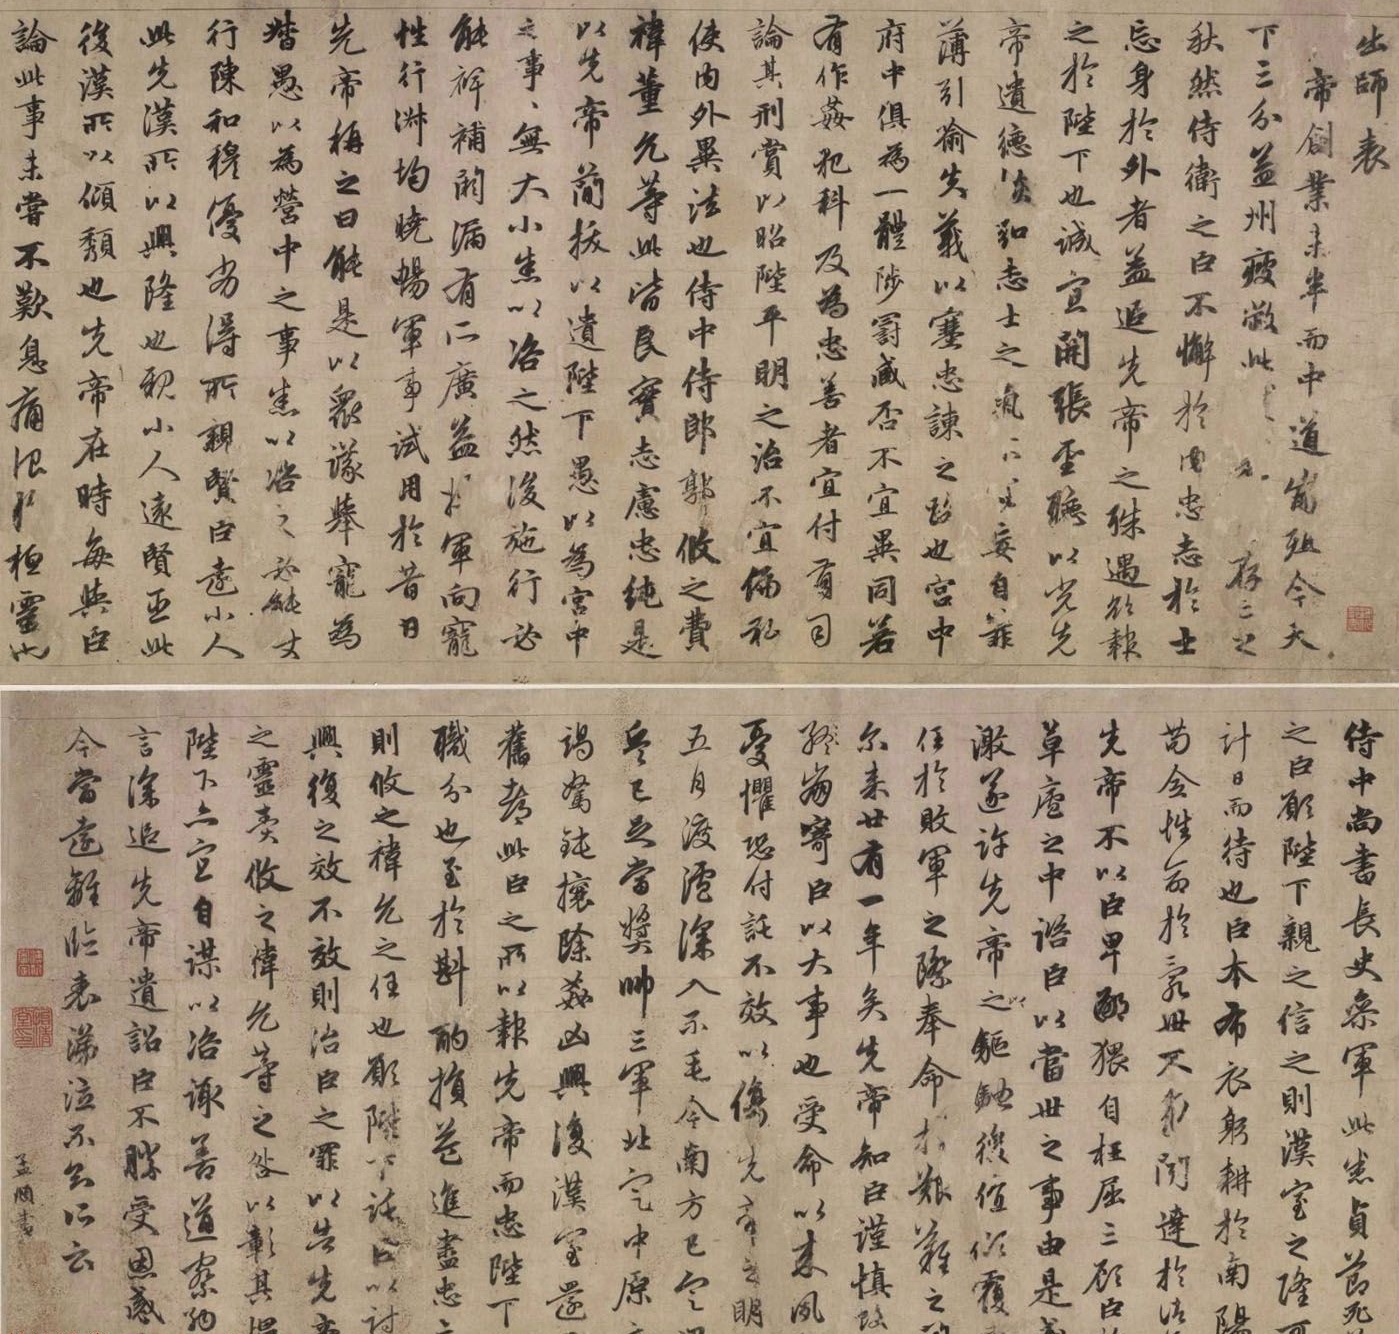 出師表
帝創業未半而中道崩殂今天
下三分益州疲敝此
存亡之
秋然侍衛之臣不懈於內忠志於士
忘身於外者蓋追先帝之殊遇欲報
之於陛下也誠宜開張聖聽以光先
帝遺德恢弘志士之氣不宜妄自菲
薄引喻失義以塞忠諫之路也宮中
府中俱為一體陟罰臧否不宜異同若
有作姦犯科及為忠善者宜付有司
論其刑賞以昭陛平明之治不宜偏私
使內外異法也侍中侍郎郭攸之費
禕董允等此皆良實志慮忠純是
以先帝簡拔以遺陛下愚以為宮中
之事、無大小悉以咨之然後施行必
能裨補闕漏有所廣益將軍向寵
性行淑均曉暢軍事試用於昔日
先帝稱之曰能是以眾議舉寵為
督愚以為營中之事悉以咨之必能丈
行陳和穆優劣得所親賢臣遠小人
此先漢所以興隆也親小人遠賢臣此
後漢所以傾頹也先帝在時每與臣
論此事未嘗不歎息痛恨於桓靈也
侍中尚書長史參軍此悉貞節死
之臣願陛下親之信之則漢室之隆可
計日而待也臣本布衣躬耕於南陽
苟全性命於亂世不求聞達於諸
先帝不以臣卑鄙猥自枉屈三顧臣
草廬之中諮臣以當世之事由是感
激遂許先帝之驅馳後值傾覆
任於敗軍之際奉命於艱難之
尔來廿有一年矣先帝知臣謹慎
臨崩寄臣以大事也受命以來夙
憂懼恐付託不效以傷先帝之明
五月渡瀘深入不毛今南方已定
兵已足當獎帥三軍北定中原
竭駑鈍攘除姦凶興復漢室還
舊都此臣之所以報先帝而忠陛下
職分也至於斟酌損益進盡忠
則攸之禕允之任也願陛下託臣以討
興復之效不效則治臣之罪以告先帝
之靈責攸之禕允等之咎以彰其慢
陛下亦宜自謀以咨諏善道察納
言深追先帝遺詔臣不勝受恩感
今當遠離臨表涕泣不知所云
孟頫書